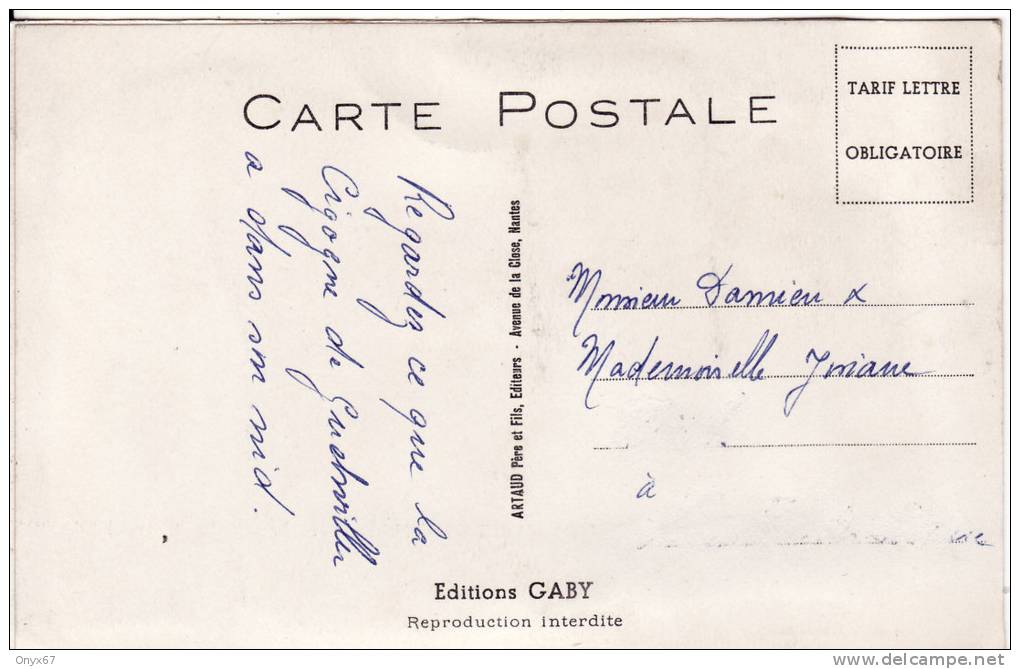 CARTE POSTALE
TARIF LETTRE
OBLIGATOIRE
Regardez ce que la
Cigogne de Guebwiller
a dans son nid.
ARTAUD Père et Fils, Editeurs - Avenue de la Close, Nantes
Monsieur Damien &
Mademoiselle Josiane
à
Editions GABY
Reproduction interdite
Onyx67
www.delcampe.net